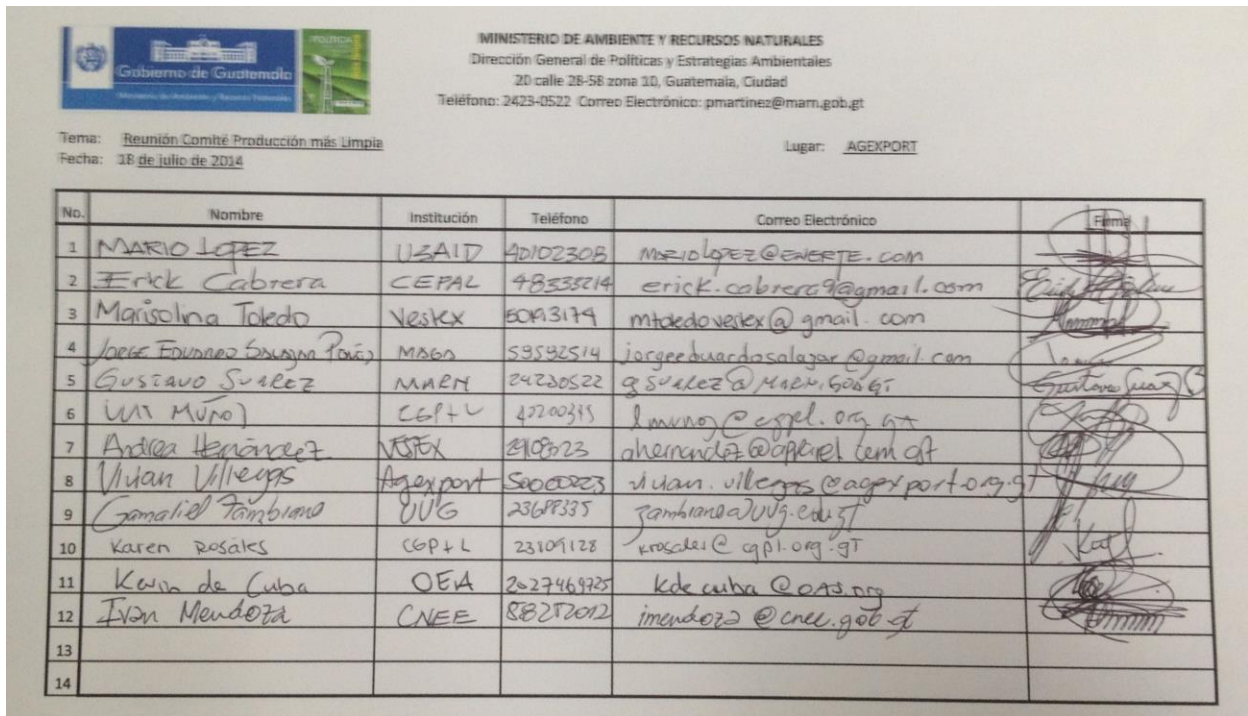 Gobierno de Guatemala
Ministerio de Ambiente y Recursos Naturales
POLÍTICA
MINISTERIO DE AMBIENTE Y RECURSOS NATURALES
Dirección General de Políticas y Estrategias Ambientales
20 calle 28-58 zona 10, Guatemala, Ciudad
Teléfono: 2423-0522 Correo Electrónico: pmartinez@marn.gob.gt
Tema: Reunión Comité Producción más Limpia
Lugar: AGEXPORT
Fecha: 18 de julio de 2014
No. Nombre Institución Teléfono Correo Electrónico Firma
1 MARIO LOPEZ USAID 40102308 mariolopez@ENERTE.com
2 Erick Cabrera CEPAL 48335214 erick.cabrera9@gmail.com
3 Marisolina Toledo Vestex mtoledovestex@gmail.com
4 JORGE EDUARDO MAGA 59592514 jorgeeduardosalazar@gmail.com
5 GUSTAVO SUAREZ MARN 24230522 gsuarez@MARN.GOB.GT Gustavo Suarez
6 LUIS MUÑOZ CGP+L lmunoz@cgpl.org.gt
7 Andrea Hernández VESTEX ahernandez@apparel.com.gt
8 Vivian Villegas Agexport vivian.villegas@agexport.org.gt
9 Gamaliel Zambrano UVG 23688335 zambrano@uvg.edu.gt
10 Karen Rosales CGP+L 23109128 krosales@cgpl.org.gt
11 Kevin de Cuba OEA 2027469725 kdecuba@OAS.org
12 Ivan Mendoza CNEE 58252012 imendoza@cnee.gob.gt
13
14